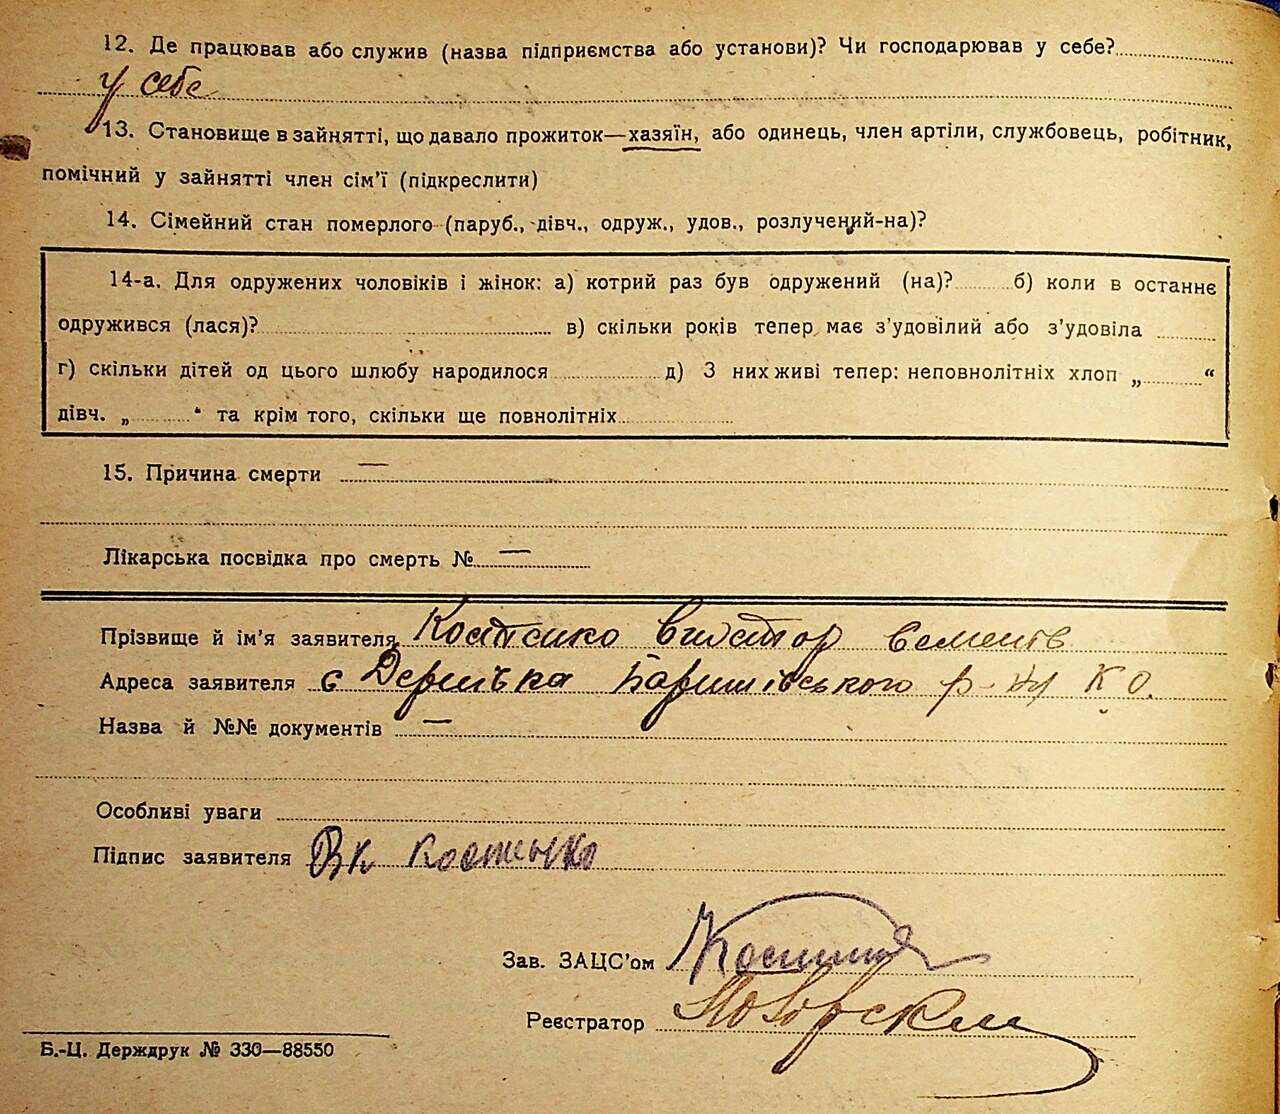 12. Де працював або служив (назва підприємства або установи)? Чи господарював у себе?
у себе
13. Становище в зайнятті, що давало прожиток—хазяїн, або одинець, член артіли, службовець, робітник,
помічний у зайнятті член сім'ї (підкреслити)
14. Сімейний стан померлого (паруб., дівч., одруж., удов., розлучений-на)?
14-а. Для одружених чоловіків і жінок: а) котрий раз був одружений (на)? б) коли в останнє
одружився (лася)? в) скільки років тепер має з'удовілий або з'удовіла
г) скільки дітей од цього шлюбу народилося д) З них живі тепер: неповнолітніх хлоп „ “
дівч. „ “ та крім того, скільки ще повнолітніх
15. Причина смерти —
Лікарська посвідка про смерть № —
Прізвище й ім'я заявителя Костенко Виктор Семенів
Адреса заявителя с Дернівка Баришівського р-ну К О.
Назва й №№ документів —
Особливі уваги
Підпис заявителя Вк Костенько
Зав. ЗАЦС'ом
Реєстратор
Б.-Ц. Держдрук № 330—88550